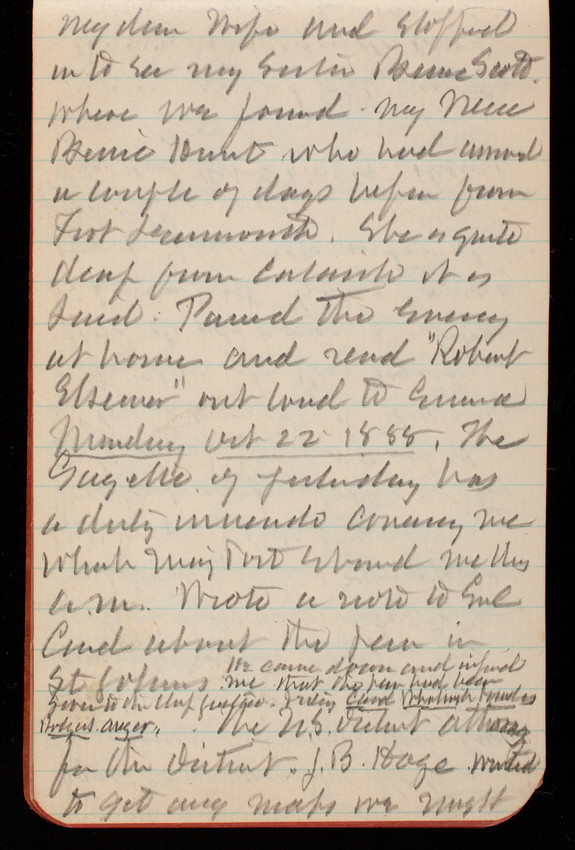 my dear Wife and stopped
in to see my Sister Bessie Scott.
where we found my Niece
Bessie Hunt who had arrived
a couple of days before from
Fort Leavenworth. She is quite
deaf from Catarrh it is
said. Passed the Evening
at home and read "Robert
Elsemer" out loud to Emma
Monday Oct 22 1888. The
Gazette of yesterday has
a dirty inuendo concerng me
which Maj Post showed me this
a.m. Wrote a note to Gnl
about the pew in
St Johns. He came down and informd
me that the pew had been
given to
The U.S. District attorney
for the District. J.B. Hoge wanted
to get any maps we might